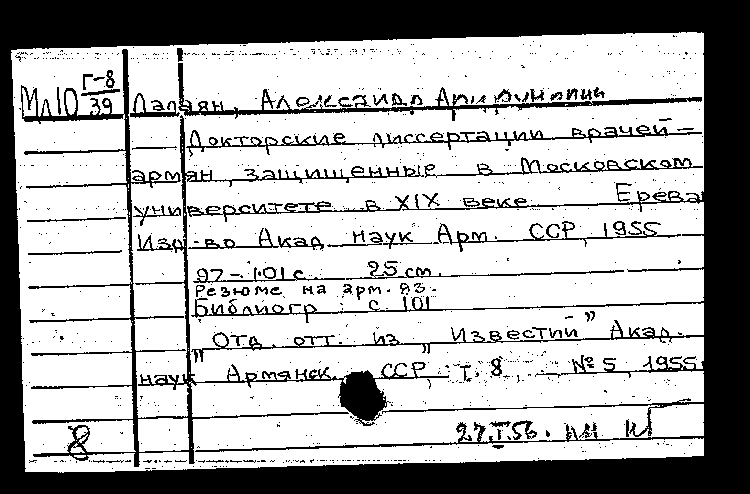 Мл10 Г-8
39
Лалаян, Александр
Докторские диссертации врачей-
армян, защищенные в Московском
университете в XIX веке Ерева
Изд-во Акад. наук Арм. ССР, 1955
97-101 с. 25 см.
Резюме на арм. яз.
Библиогр. с. 101
Отд. отт. из „Известий” Акад.
наук Армянск. ССР, т. 8, №5, 1955
8
27.I.56.